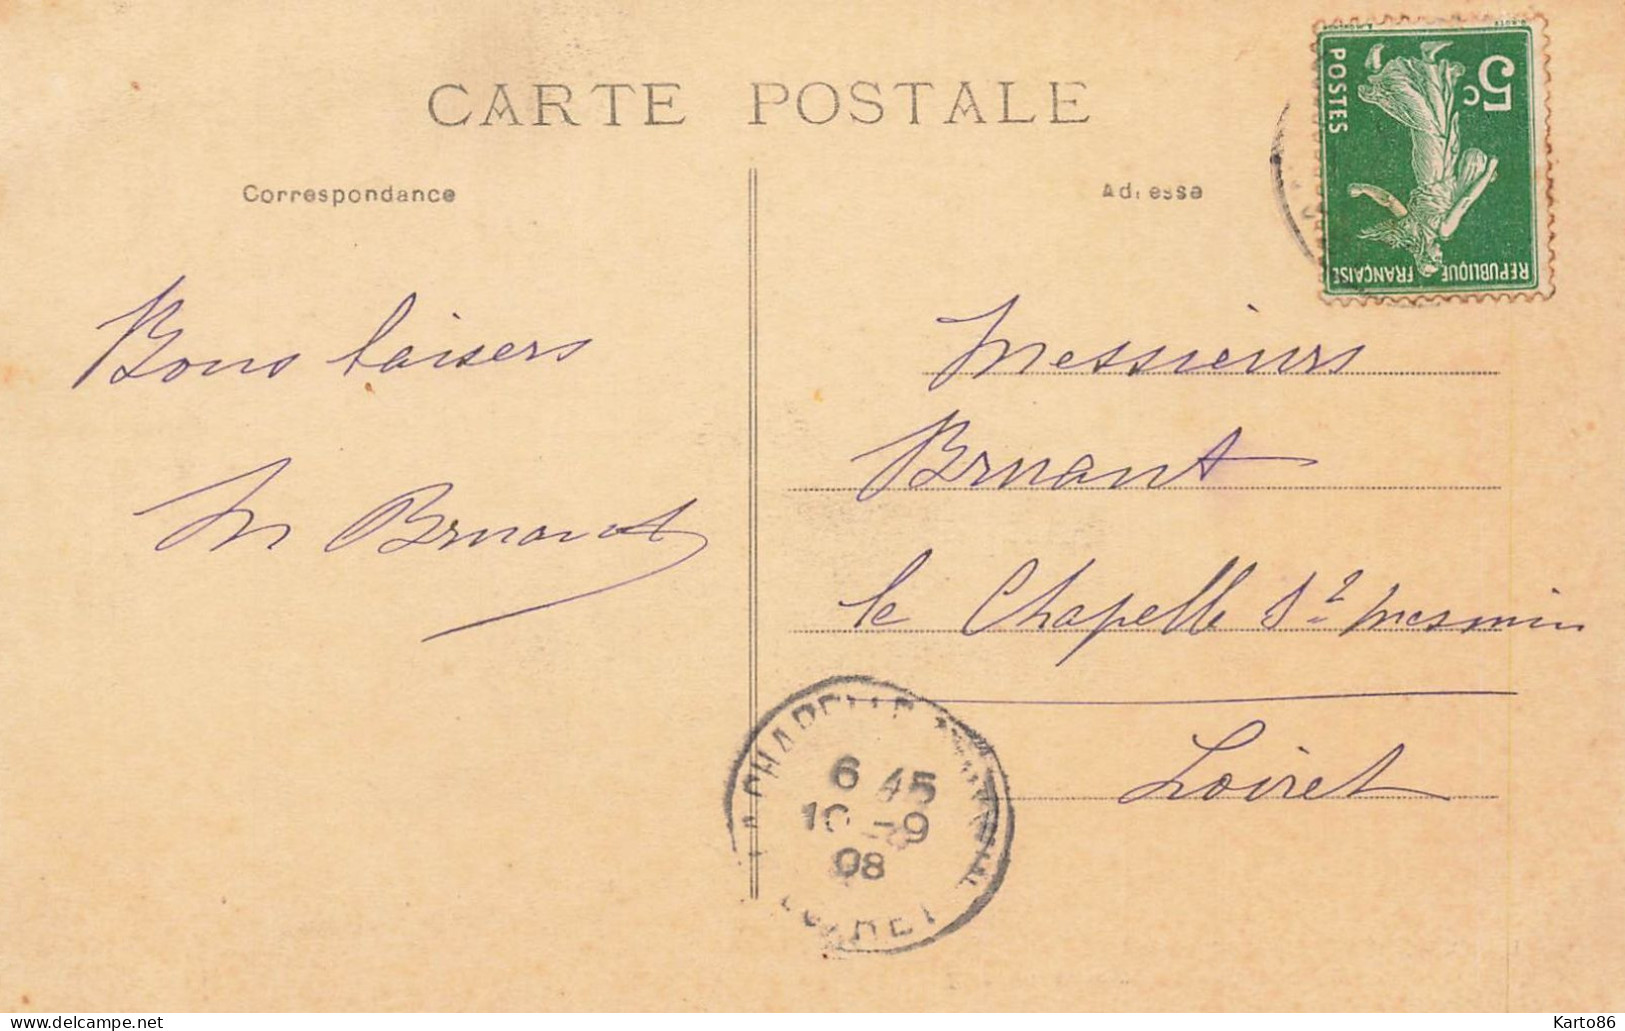 CARTE POSTALE
Correspondance
Adresse
5c
POSTES
REPUBLIQUE FRANÇAISE
Bons baisers
M Bruant
Messieurs
Bruant
la Chapelle St Mesmin
Loiret
LA CHAPELLE
6 45
10 -9
08
LOIRET
Karto86